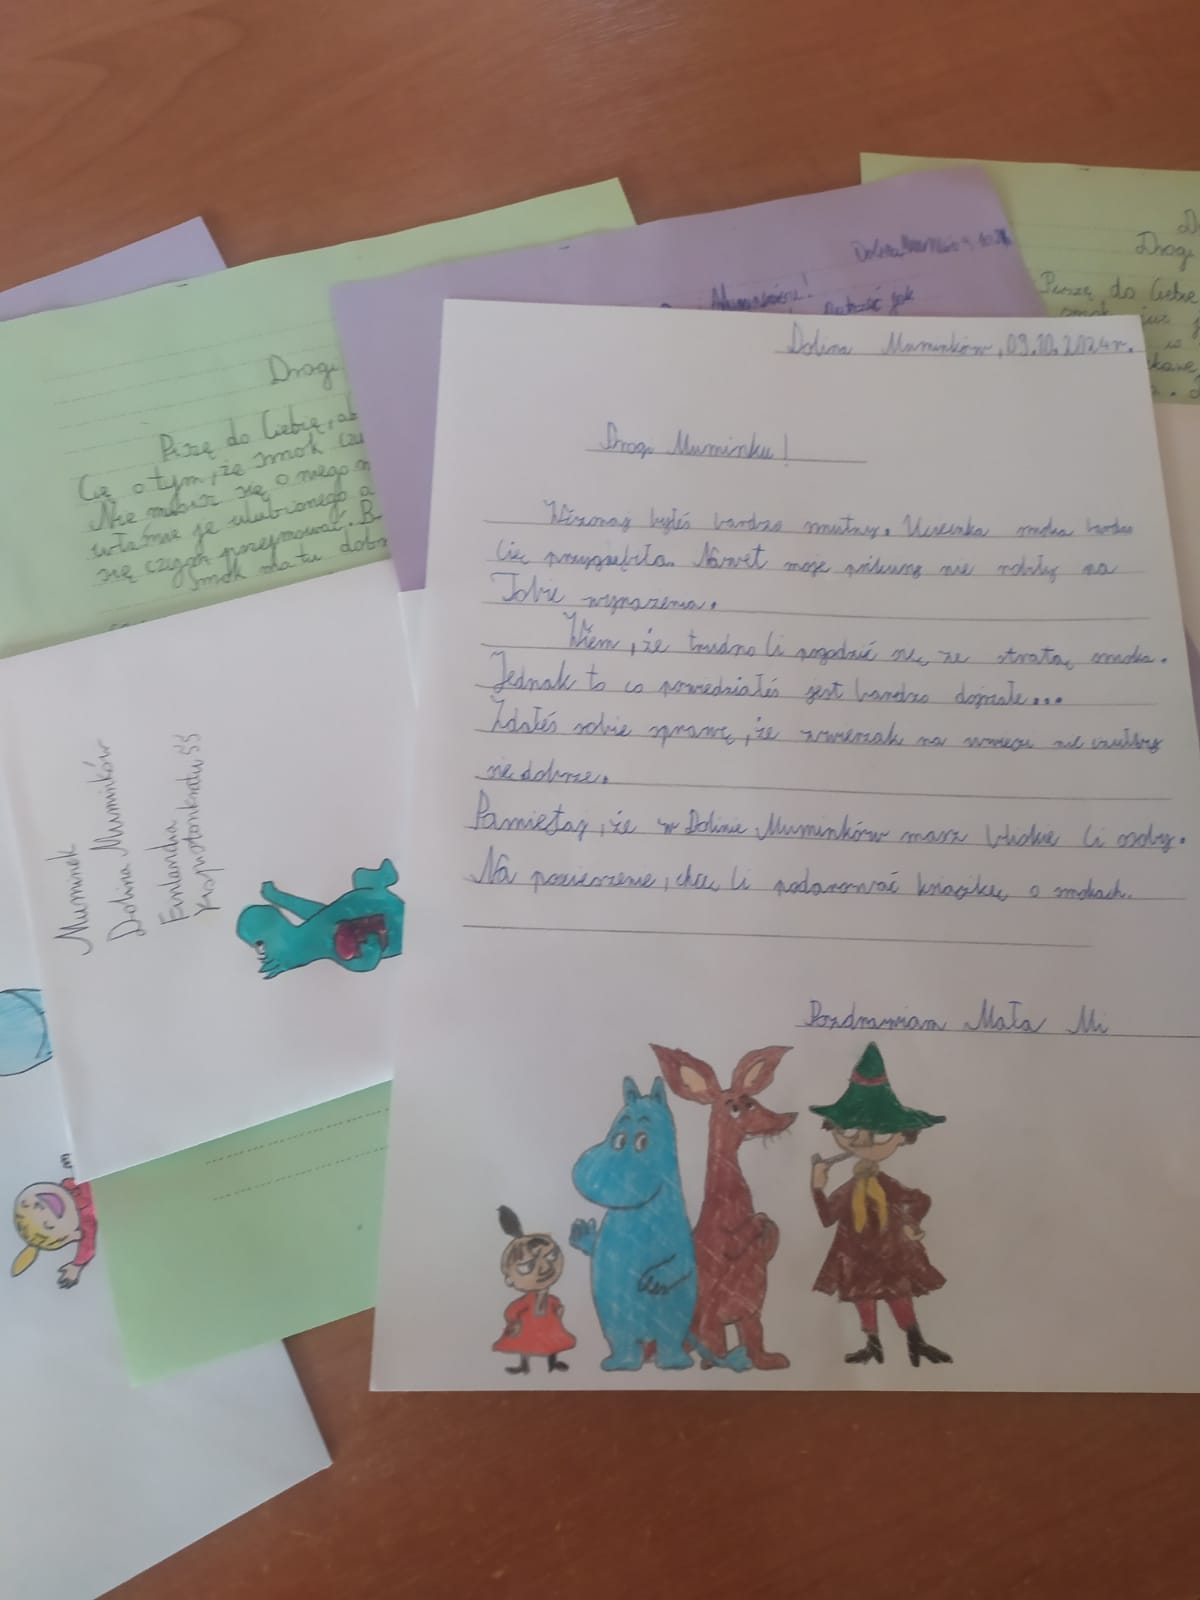 Dolina Muminków, 09.10.2024r.
Drogi Muminku!
Wczoraj byłeś bardzo smutny. Ucieczka smoka bardzo
Cię przygnębiła. Nawet moje psikusy nie robiły na
Tobie wrażenia.
Wiem, że trudno Ci pogodzić się, ze stratą smoka.
Jednak to co powiedziałeś jest bardzo dojrzałe...
Zdałeś sobie sprawę, że zwierzak na uwięzi nie czułby
się dobrze.
Pamiętaj, że w Dolinie Muminków masz bliskie Ci osoby.
Na pocieszenie, chcę Ci podarować książkę o smokach.
Pozdrawiam Mała Mi
Drogi
Piszę do Ciebie, ab
Cię o tym, że smok czu
Nie musisz się o niego m
właśnie je ulubionego
się czymś przejmować. B
Smok ma tu dobr
Muminek
Dolina Muminków
Finlandia
Dolina
Muminku!
jak
Drogi
Piszę do Ciebie
smok już j
w